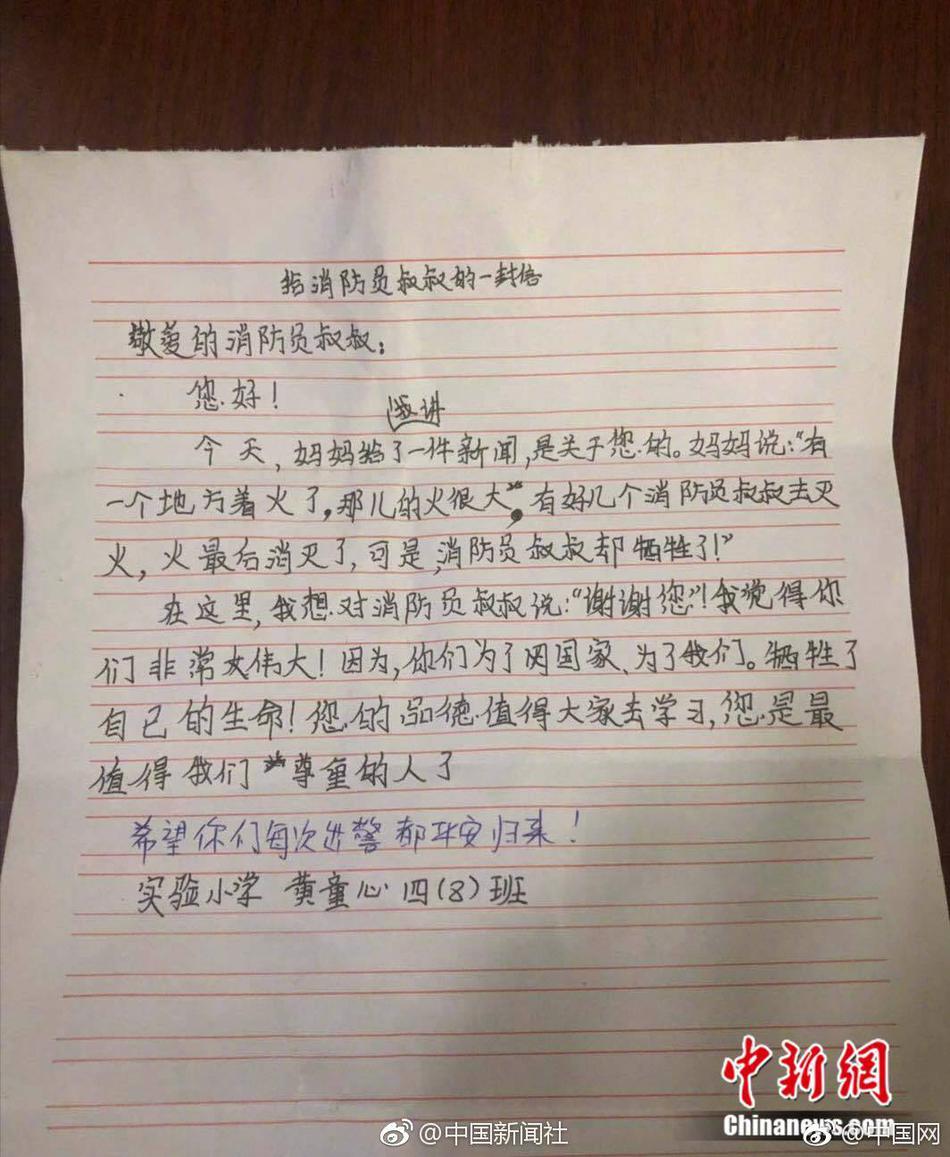 给消防员叔叔的一封信
敬爱的消防员叔叔:
您好!
我讲
今天,妈妈给了一件新闻,是关于您的。妈妈说:“有
一个地方着火了,那儿的火很大,有好几个消防员叔叔去灭
火,火最后消灭了,可是,消防员叔叔却牺牲了!”
在这里,我想对消防员叔叔说:“谢谢您”!我觉得你
们非常伟大!因为,你们为了国家、为了我们。牺牲了
自己的生命!您的品德值得大家去学习,您是最
值得我们尊重的人了
希望你们每次出警都平安归来!
实验小学 黄童心 四(8)班
中新网
Chinanews.com
@中国新闻社
@中国网